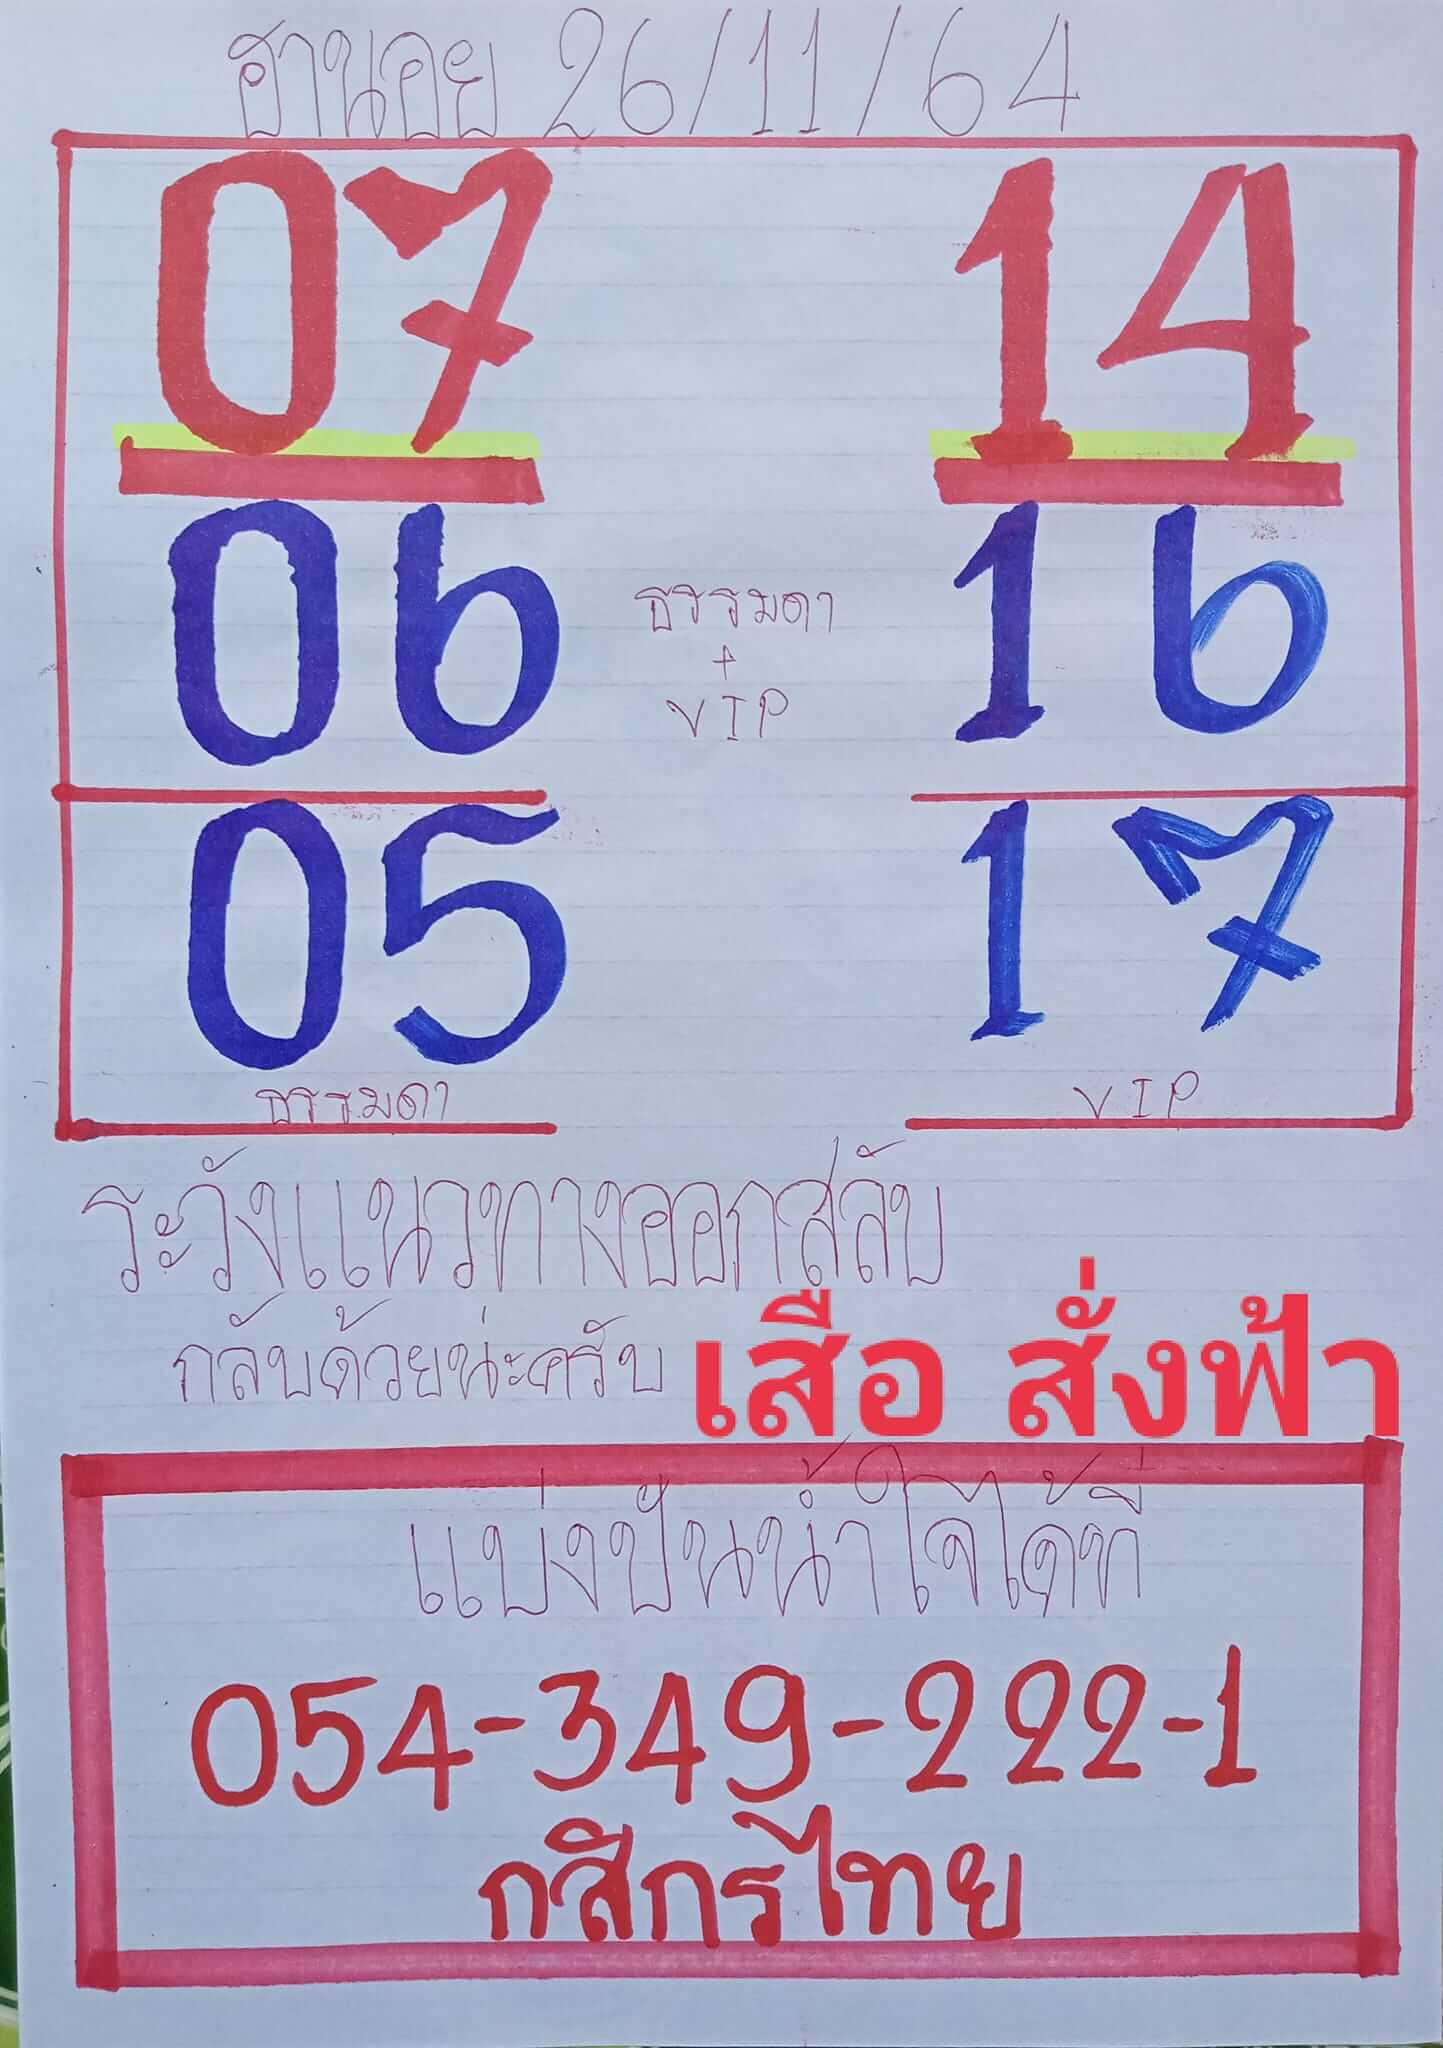 ฮานอย 26/11/64
07 14
06 16
ธรรมดา
+
VIP
05 17
ธรรมดา VIP
ระวังแนวทางออกสลับ
กลับด้วยน่ะครับ เสือ สั่งฟ้า
แบ่งปันน้ำใจได้ที่
054-349-222-1
กสิกรไทย